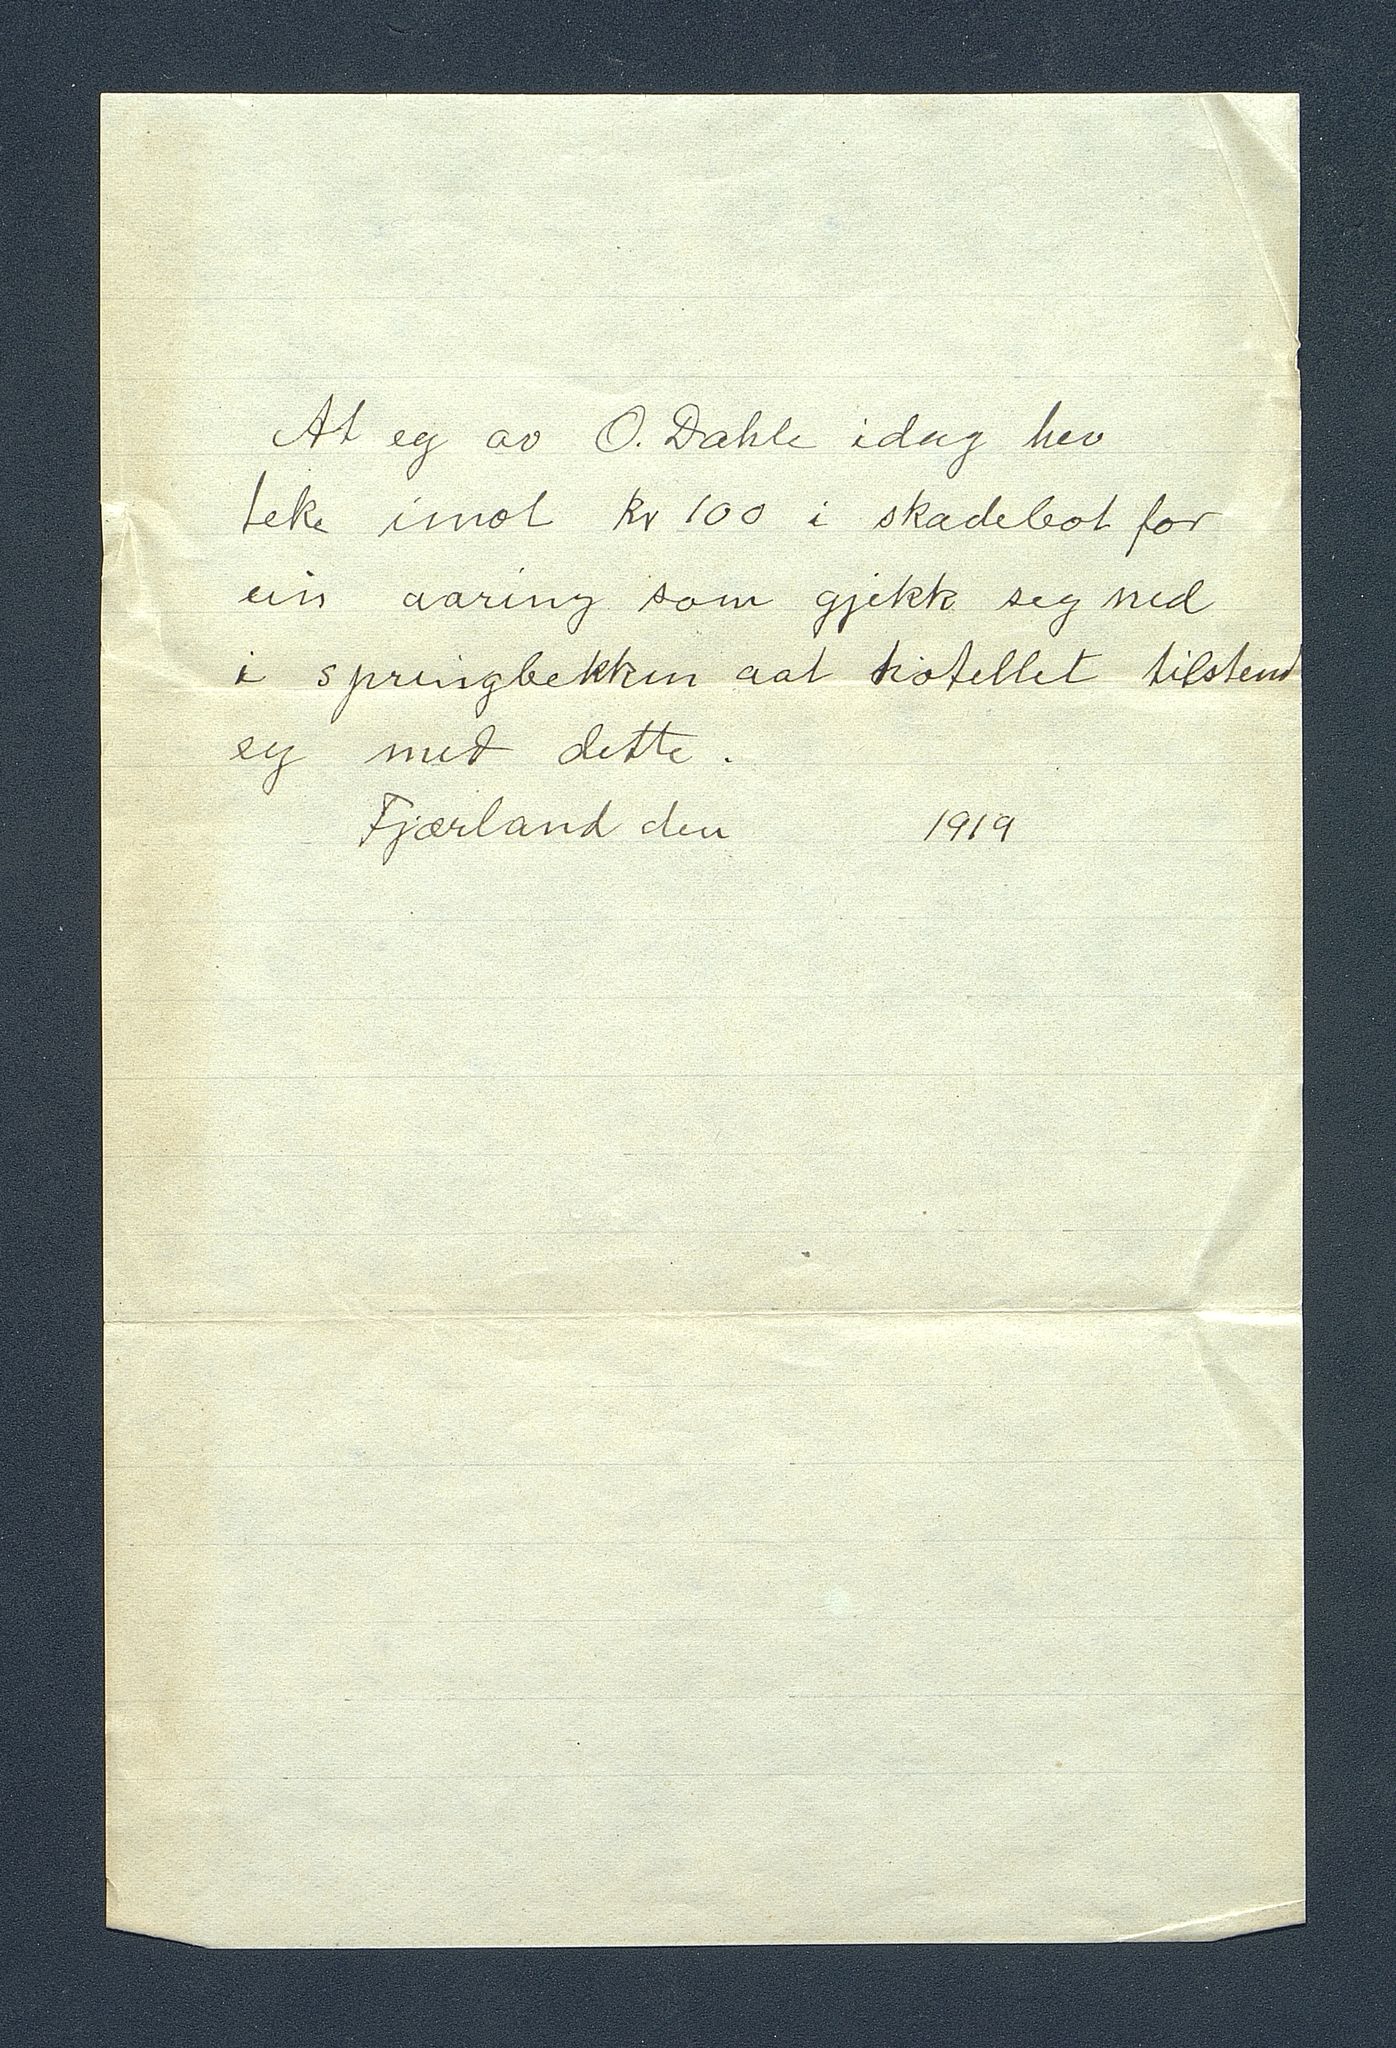 At eg av O. Dahle idag hev
teke imot kr 100 i skadebot for
ein aaring som gjekk seg ned
i springbekken aat hotellet tilstend
eg med dette.
Fjærland den 1919